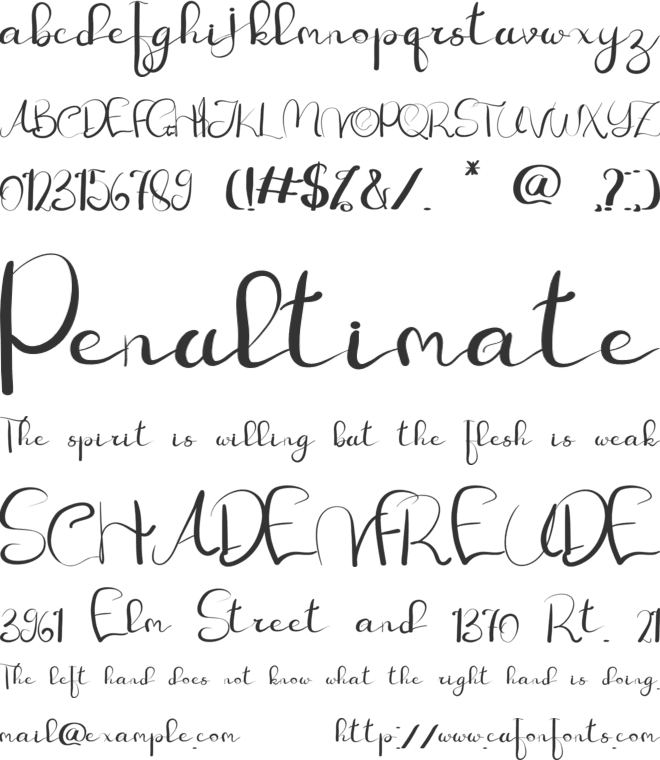 abcdefghijklmnopqrstuvwxyz
ABCDEFGHIJKLMNOPQRSTUVWXYZ
0123456789 (!#$%&/. * @ ?:;)
Penultimate
The spirit is willing but the flesh is weak
SCHADENFREUDE
3961 Elm Street and 1370 Rt. 21
The left hand does not know what the right hand is doing.
mail@example.com http://www.cafonfonts.com